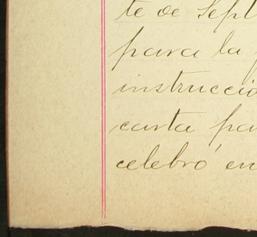 te de Sept
para la
instrucció
carta par
celebró en